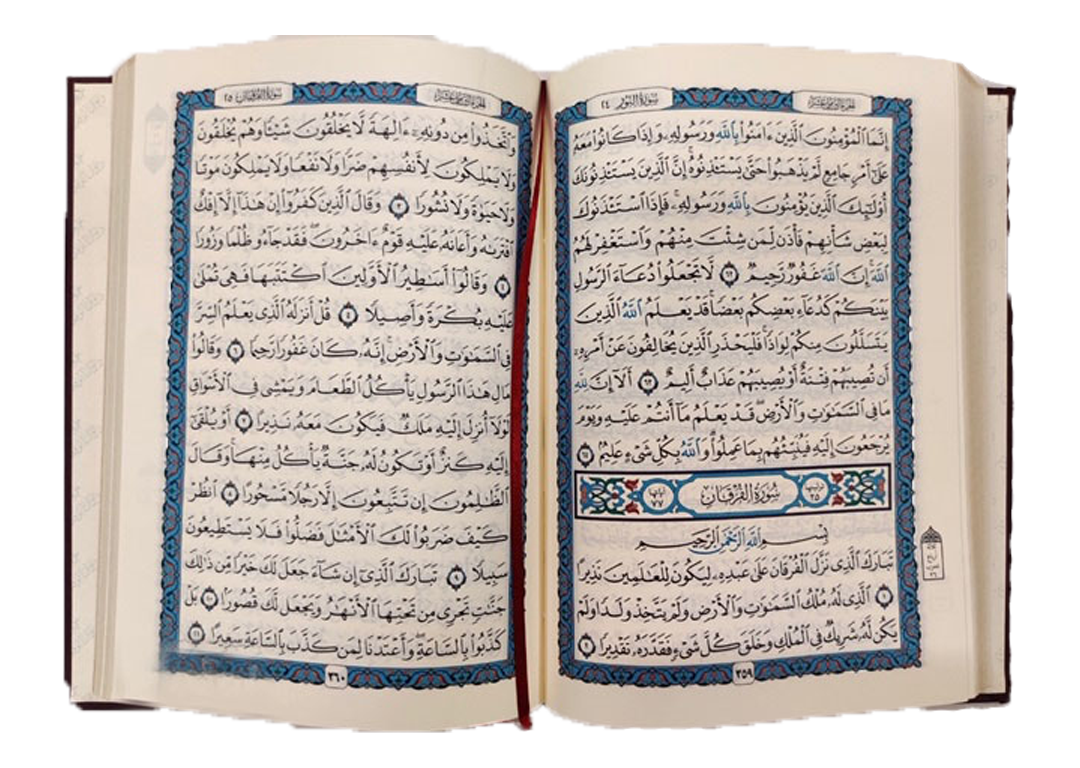 سورة النور ٢٤
إِنَّمَا ٱلْمُؤْمِنُونَ ٱلَّذِينَ ءَامَنُوا۟ بِٱللَّهِ وَرَسُولِهِۦ وَإِذَا كَانُوا۟ مَعَهُۥ
عَلَىٰٓ أَمْرٍ جَامِعٍ لَّمْ يَذْهَبُوا۟ حَتَّىٰ يَسْتَـْٔذِنُوهُ ۚ إِنَّ ٱلَّذِينَ يَسْتَـْٔذِنُونَكَ
أُو۟لَـٰٓئِكَ ٱلَّذِينَ يُؤْمِنُونَ بِٱللَّهِ وَرَسُولِهِۦ ۚ فَإِذَا ٱسْتَـْٔذَنُوكَ
لِبَعْضِ شَأْنِهِمْ فَأْذَن لِّمَن شِئْتَ مِنْهُمْ وَٱسْتَغْفِرْ لَهُمُ
ٱللَّهَ ۚ إِنَّ ٱللَّهَ غَفُورٌ رَّحِيمٌ ٦٢ لَّا تَجْعَلُوا۟ دُعَآءَ ٱلرَّسُولِ
بَيْنَكُمْ كَدُعَآءِ بَعْضِكُم بَعْضًا ۚ قَدْ يَعْلَمُ ٱللَّهُ ٱلَّذِينَ
يَتَسَلَّلُونَ مِنكُمْ لِوَاذًا ۚ فَلْيَحْذَرِ ٱلَّذِينَ يُخَالِفُونَ عَنْ أَمْرِهِۦٓ
أَن تُصِيبَهُمْ فِتْنَةٌ أَوْ يُصِيبَهُمْ عَذَابٌ أَلِيمٌ ٦٣ أَلَآ إِنَّ لِلَّهِ
مَا فِى ٱلسَّمَـٰوَٰتِ وَٱلْأَرْضِ ۖ قَدْ يَعْلَمُ مَآ أَنتُمْ عَلَيْهِ وَيَوْمَ
يُرْجَعُونَ إِلَيْهِ فَيُنَبِّئُهُم بِمَا عَمِلُوا۟ ۗ وَٱللَّهُ بِكُلِّ شَىْءٍ عَلِيمٌ ٦٤
ترتيبها ٢٥ سُورَةُ الْفُرْقَانِ آياتها ٧٧
بِسْمِ ٱللَّهِ ٱلرَّحْمَـٰنِ ٱلرَّحِيمِ
تَبَارَكَ ٱلَّذِى نَزَّلَ ٱلْفُرْقَانَ عَلَىٰ عَبْدِهِۦ لِيَكُونَ لِلْعَـٰلَمِينَ نَذِيرًا
١ ٱلَّذِى لَهُۥ مُلْكُ ٱلسَّمَـٰوَٰتِ وَٱلْأَرْضِ وَلَمْ يَتَّخِذْ وَلَدًا وَلَمْ
يَكُن لَّهُۥ شَرِيكٌ فِى ٱلْمُلْكِ وَخَلَقَ كُلَّ شَىْءٍ فَقَدَّرَهُۥ تَقْدِيرًا ٢
٣٥٩
سورة الفرقان ٢٥
وَٱتَّخَذُوا۟ مِن دُونِهِۦٓ ءَالِهَةً لَّا يَخْلُقُونَ شَيْـًٔا وَهُمْ يُخْلَقُونَ
وَلَا يَمْلِكُونَ لِأَنفُسِهِمْ ضَرًّا وَلَا نَفْعًا وَلَا يَمْلِكُونَ مَوْتًا
وَلَا حَيَوٰةً وَلَا نُشُورًا ٣ وَقَالَ ٱلَّذِينَ كَفَرُوٓا۟ إِنْ هَـٰذَآ إِلَّآ إِفْكٌ
ٱفْتَرَىٰهُ وَأَعَانَهُۥ عَلَيْهِ قَوْمٌ ءَاخَرُونَ ۖ فَقَدْ جَآءُو ظُلْمًا وَزُورًا
٤ وَقَالُوٓا۟ أَسَـٰطِيرُ ٱلْأَوَّلِينَ ٱكْتَتَبَهَا فَهِىَ تُمْلَىٰ
عَلَيْهِ بُكْرَةً وَأَصِيلًا ٥ قُلْ أَنزَلَهُ ٱلَّذِى يَعْلَمُ ٱلسِّرَّ
فِى ٱلسَّمَـٰوَٰتِ وَٱلْأَرْضِ ۚ إِنَّهُۥ كَانَ غَفُورًا رَّحِيمًا ٦ وَقَالُوا۟
مَالِ هَـٰذَا ٱلرَّسُولِ يَأْكُلُ ٱلطَّعَامَ وَيَمْشِى فِى ٱلْأَسْوَاقِ ۙ
لَوْلَآ أُنزِلَ إِلَيْهِ مَلَكٌ فَيَكُونَ مَعَهُۥ نَذِيرًا ٧ أَوْ يُلْقَىٰٓ
إِلَيْهِ كَنزٌ أَوْ تَكُونُ لَهُۥ جَنَّةٌ يَأْكُلُ مِنْهَا ۚ وَقَالَ
ٱلظَّـٰلِمُونَ إِن تَتَّبِعُونَ إِلَّا رَجُلًا مَّسْحُورًا ٨ ٱنظُرْ
كَيْفَ ضَرَبُوا۟ لَكَ ٱلْأَمْثَـٰلَ فَضَلُّوا۟ فَلَا يَسْتَطِيعُونَ
سَبِيلًا ٩ تَبَارَكَ ٱلَّذِىٓ إِن شَآءَ جَعَلَ لَكَ خَيْرًا مِّن ذَٰلِكَ
جَنَّـٰتٍ تَجْرِى مِن تَحْتِهَا ٱلْأَنْهَـٰرُ وَيَجْعَل لَّكَ قُصُورًا ١٠ بَلْ
كَذَّبُوا۟ بِٱلسَّاعَةِ ۖ وَأَعْتَدْنَا لِمَن كَذَّبَ بِٱلسَّاعَةِ سَعِيرًا ١١
٣٦٠